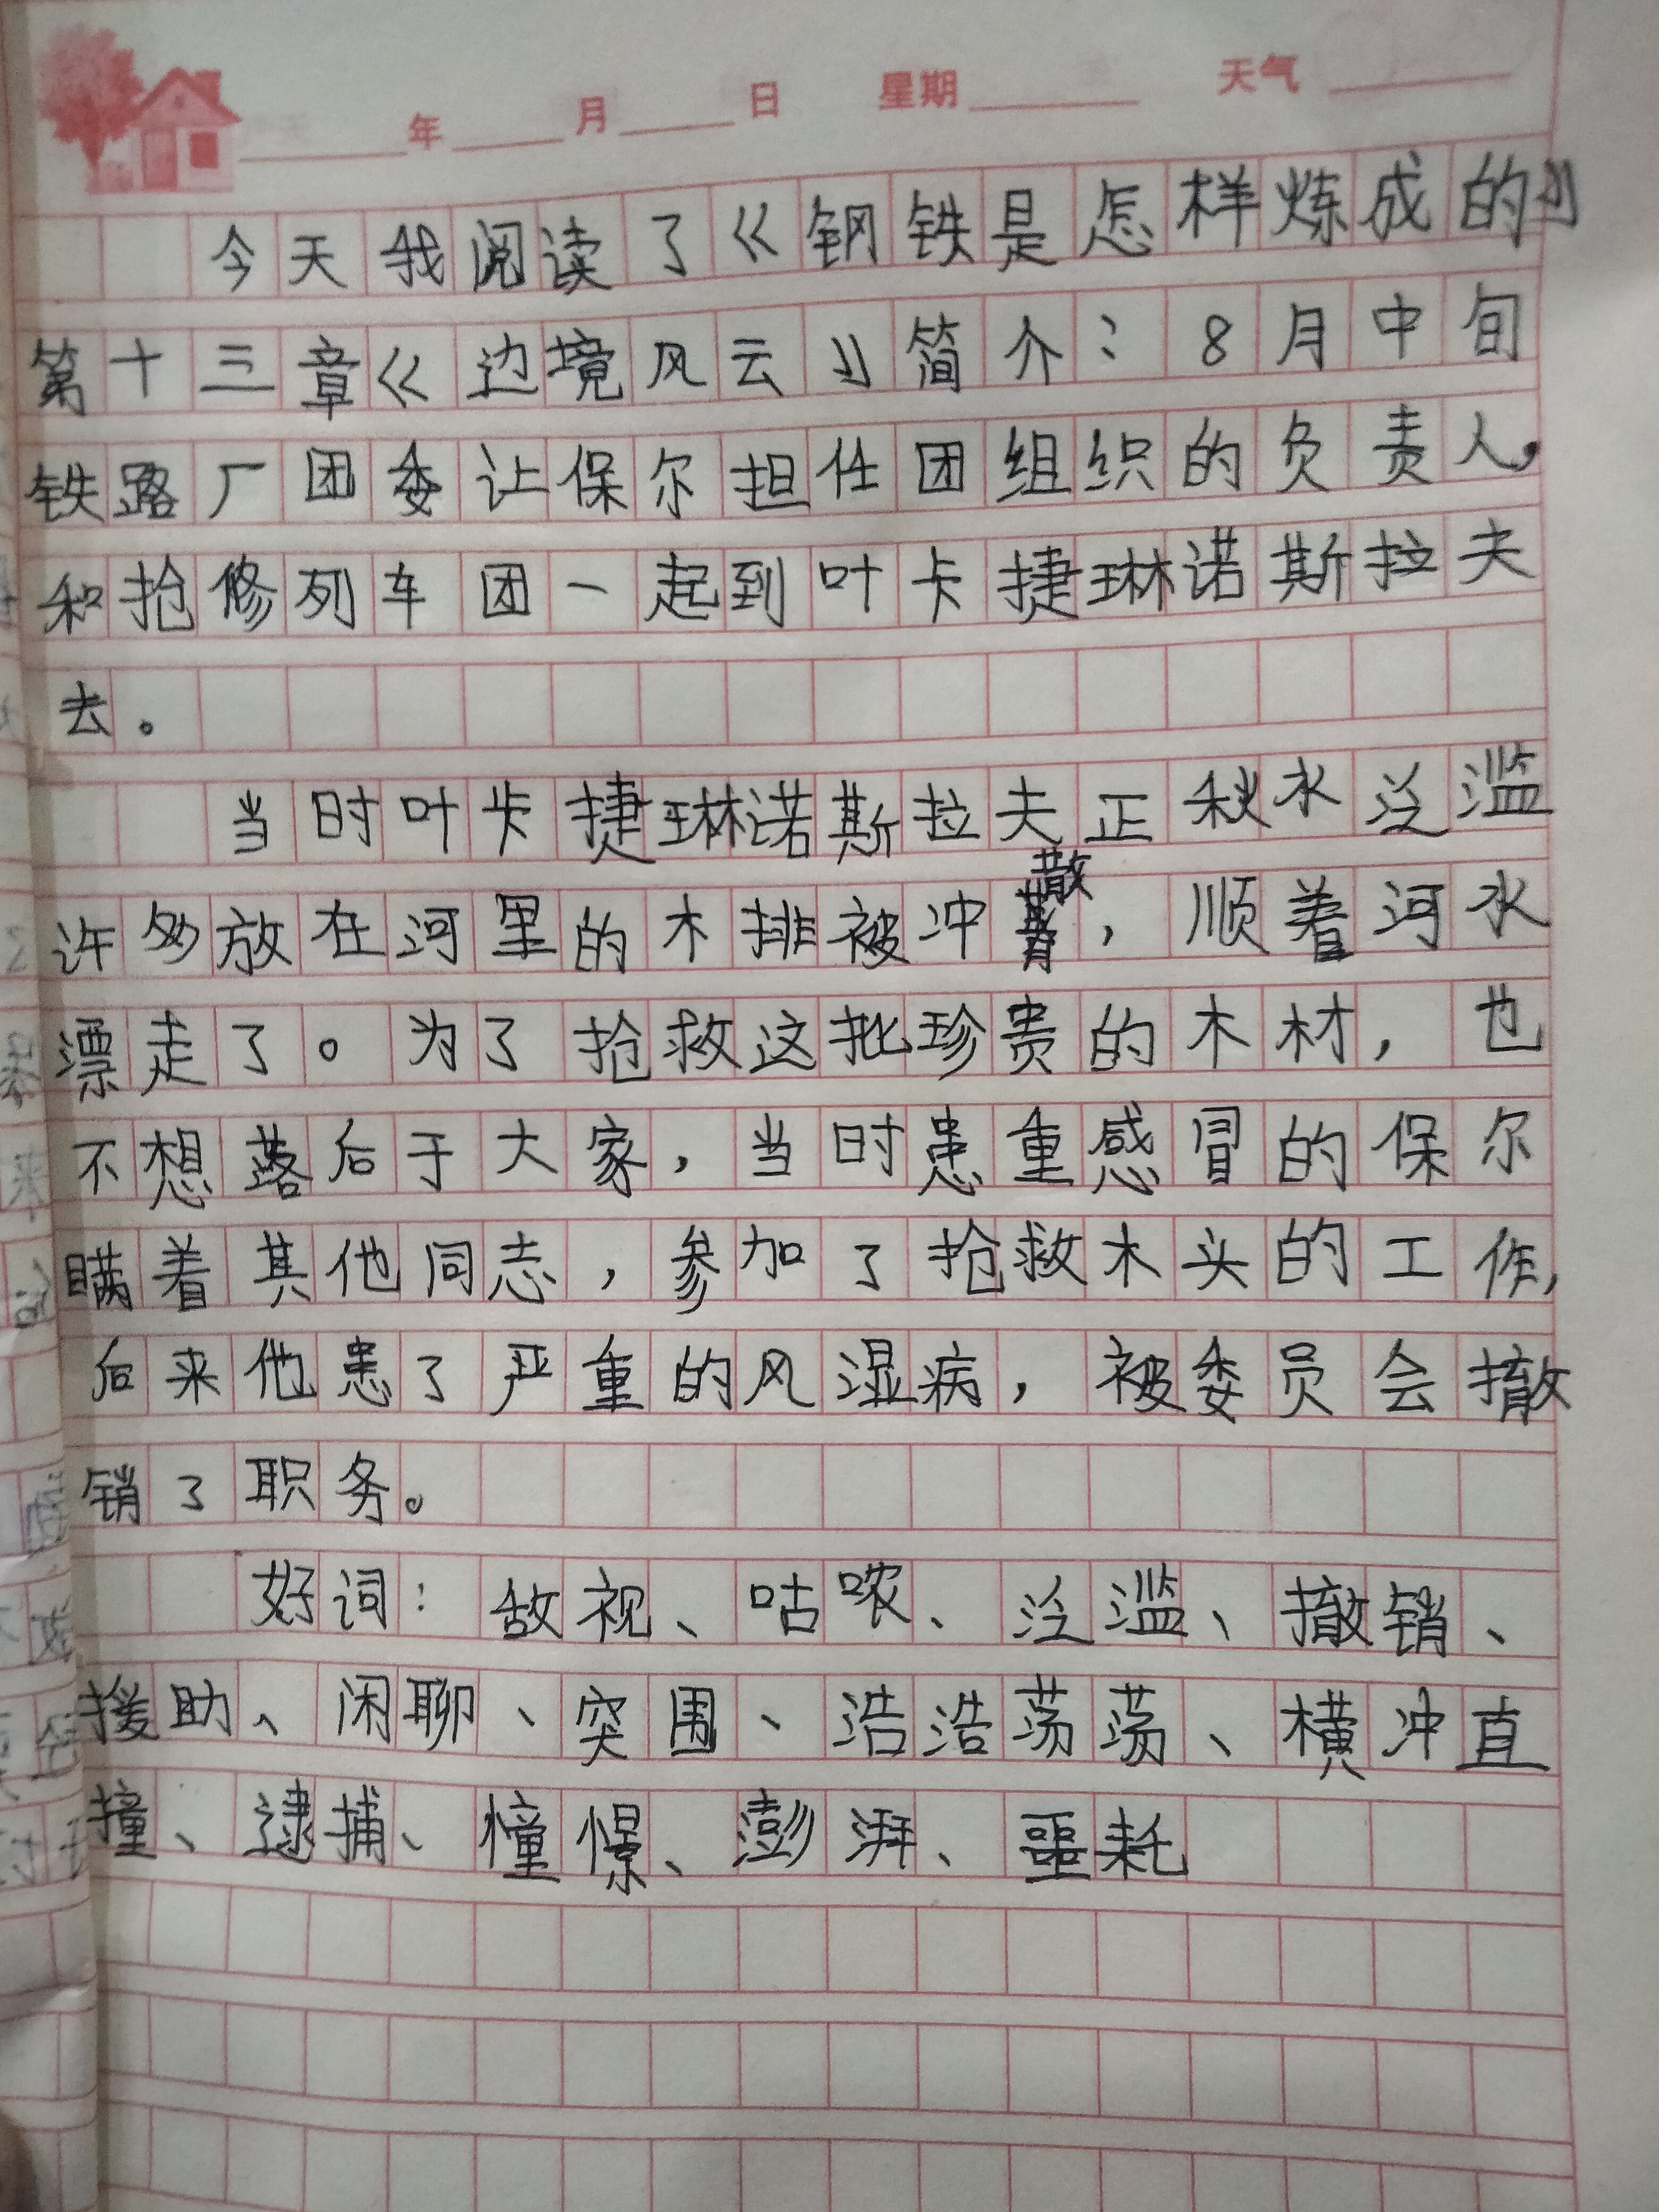 年 月 日 星期 天气
今天我阅读了《钢铁是怎样炼成的》
第十三章《边境风云》简介：8月中旬
铁路厂团委让保尔担任团组织的负责人，
和抢修列车团一起到叶卡捷琳诺斯拉夫
去。
当时叶卡捷琳诺斯拉夫正秋水泛滥
许多放在河里的木排被冲散，顺着河水
漂走了。为了抢救这批珍贵的木材，也
不想落后于大家，当时患重感冒的保尔
瞒着其他同志，参加了抢救木头的工作，
后来他患了严重的风湿病，被委员会撤
销了职务。
好词：敌视、咕哝、泛滥、撤销、
援助、闲聊、突围、浩浩荡荡、横冲直
撞、逮捕、憧憬、澎湃、噩耗